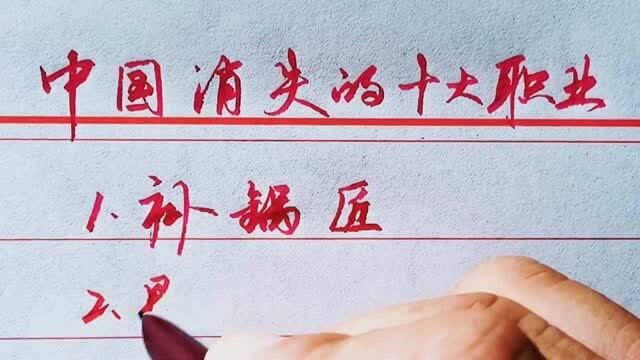 中国消失的十大职业
1.补锅匠
2.